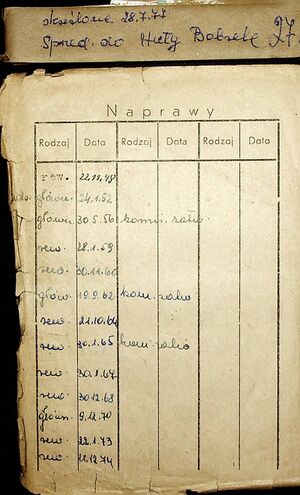 skreślone 28.7.77
Sprzed. do Huty Bobrek 27.
Naprawy
Rodzaj Data Rodzaj Data Rodzaj Data
rew. 22.11.48
główn. 24.1.52
główna 30.5.56
rew. 28.1.59
rew. 30.11.60
główn. 19.9.62
rew. 21.10.64
rew. 30.1.65
rew. 30.1.67
rew. 30.12.68
główn. 9.12.70
rew. 22.1.73
rew. 11.12.74